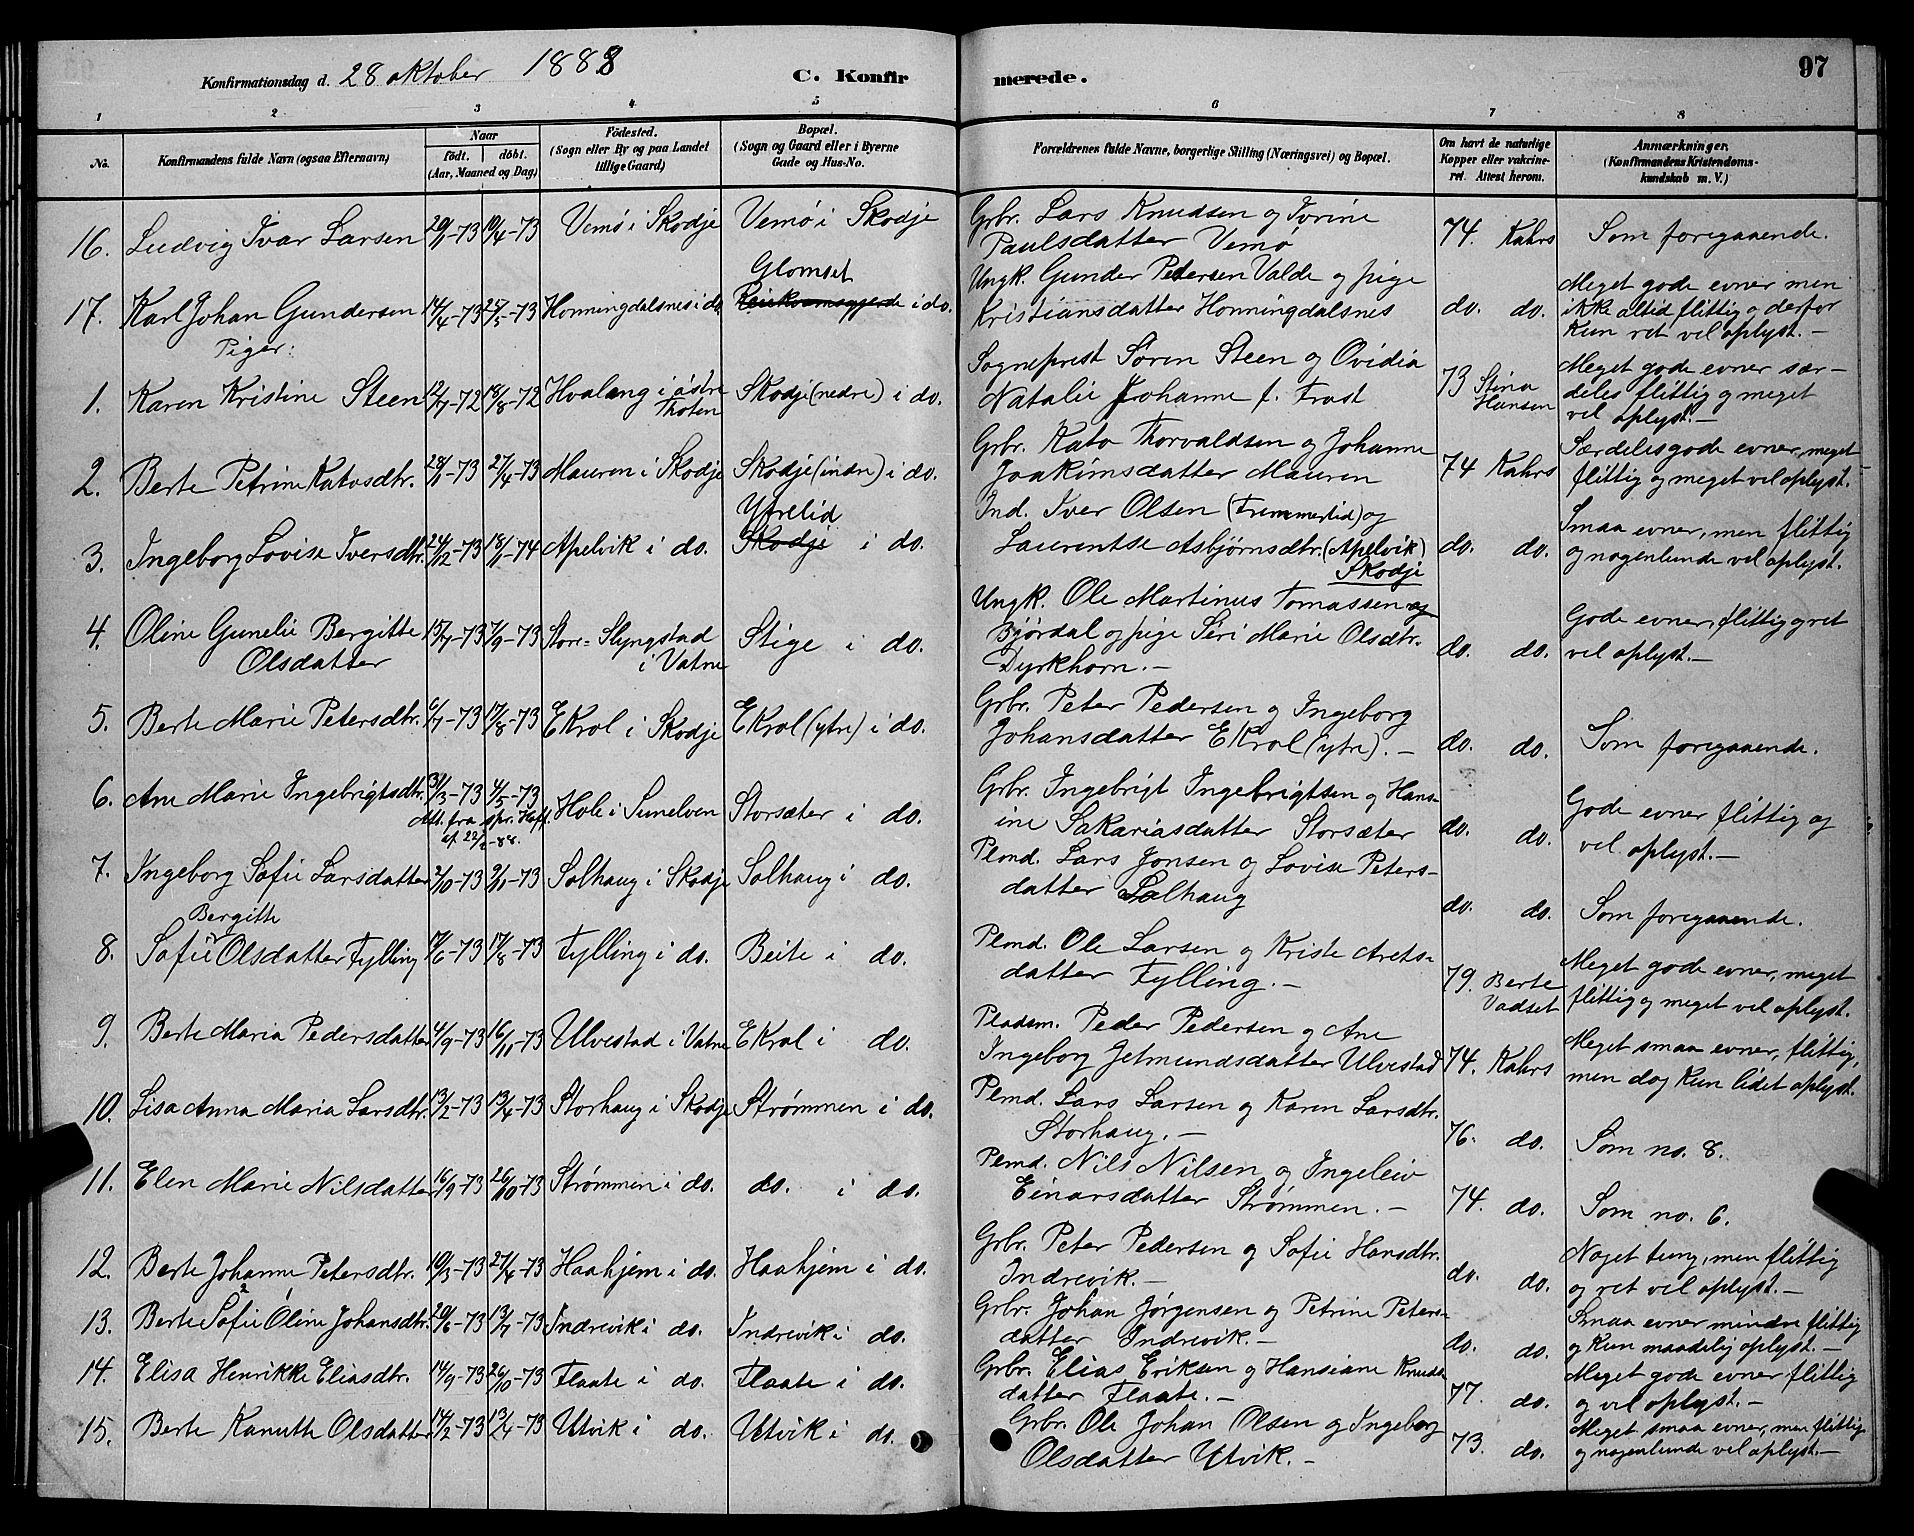 Konfirmationsdag d. 28 oktober 1888
C. Konfir merede.
97
1 2 3 4 5 6 7 8
No.
Konfirmandens fulde Navn (ogsaa Efternavn)
Naar
födt. döbt.
(Aar, Maaned og Dag)
Födested.
(Sogn eller By og paa Landet
tillige Gaard)
Bopæl.
(Sogn og Gaard eller i Byerne
Gade og Hus-No.
Forældrenes fulde Navne, borgerlige Stilling (Næringsvei) og Bopæl.
Om havt de naturlige
Kopper eller vakcine-
ret. Attest herom.
Anmærkninger.
(Konfirmandens Kristendoms-
kundskab m. V.)
16. Ludvig Ivar Larsen 29/1-73 19/4-73 Vemø i Skodje Vemø i Skodje
Grbr. Lars Knudsen og Ivrine
Paulsdatter Vemø
74. Kahrs Som foregaaende.
17. Karl Johan Gundersen 14/4-73 25/5-73 Honningdalsnes i do. Glomset i do.
Ungk. Gunder Petersen Valde og pige
Kristiansdatter Honningdalsnes
do. do. Meget gode evner men
ikke altid flittig o derfor
kun ret vel oplyst.-
Piger:
1. Karen Kristine Steen 12/7-72 18/8-72 Hvalang i østre
Thoten
Skodje (nedre) i do.
Sogneprest Sören Steen og Ovidia
Natalie Johanne f. Frost
73 Stina
Hansen
Meget gode evner sær-
deles flittig og meget
vel oplyst.-
2. Berte Petrine Katosdtr. 28/1-73 27/4-73 Mauren i Skodje Skodje (indre) i do.
Grbr. Kato Thorvaldsen og Johanne
Joakimsdatter Mauren
74 Kahrs Særdeles gode evner, meget
flittig og meget vel oplyst.
3. Ingeborg Lovise Iversdtr. 24/12-73 18/1-74 Apelvik i do. Ytrelid
Skodje i do.
Ind. Iver Olsen (Fremmerlid) og
Laurentse Asbjørnsdtr. (Apelvik)
Skodje
do. do. Smaa evner, men flittig
og nogenlunde vel oplyst.
4. Oline Gunelie Bergitte
Olsdatter
15/7-73 7/9-73 Stor-Slyngstad
i Vatne
Stige i do.
Ungk. Ole Martinus Tomassen og
Bjørdal og pige Seri Marie Olsdtr.
Dyrkhorn.-
do. do. Gode evner, flittig og ret
vel oplyst.-
5. Berte Marie Petersdtr. 6/7-73 17/8-73 Ekrol i Skodje Ekrol (ytre) i do.
Grbr. Peter Pedersen og Ingeborg
Johansdatter Ekrol (ytre).-
do. do. Som foregaaende.
6. Ane Marie Ingebrigtsdtr. 31/3-73 4/5-73 Hole i Sunelven Storsæter i do.
Att. fra spr. Hoff.
af 22/2-88.
Grbr. Ingebrigt Ingebrigtsen og Hans-
ine Sakariasdatter Storsæter
do. do. Gode evner flittig og
vel oplyst.-
7. Ingeborg Sofie Larsdatter 2/10-73 9/11-73 Solhaug i Skodje Solhaug i do.
Plmd. Lars Jonsen og Lovise Peters-
datter Solhaug
do. do. Som foregaaende.
Bergitte
8. Sofie Olsdatter Fylling 17/6-73 17/8-73 Fylling i do. Beite i do.
Plmd. Ole Larsen og Kriste Arets-
datter Fylling.-
79. Berte
Vadset
Meget gode evner, meget
flittig og meget vel oplyst.
9. Berte Maria Pedersdatter 4/9-73 16/11-73 Ulvestad i Vatne Ekrol i do.
Pladsm. Peder Pedersen og Ane
Ingeborg Jetmundsdatter Ulvestad
74. Kahrs Meget smaa evner, flittig,
men dog kun lidet oplyst.
10. Lisa Anna Maria Larsdtr. 13/2-73 13/4-73 Storhaug i Skodje Strømmen i do.
Plmd. Lars Larsen og Karen Larsdtr.
Storhaug.-
76. do. Som no. 8.
11. Elen Marie Nilsdatter 16/9-73 26/10-73 Strømmen i do. do. i do.
Plmd. Nils Nilsen og Ingeleiv
Einarsdatter Strømmen.-
74. do. Som no. 6.
12. Berte Johanne Petersdtr. 19/3-73 27/4-73 Haahjem i do. Haahjem i do.
Grbr. Peter Pedersen og Sofie Hansdtr.
Indrevik.-
do. do. Noget tung, men flittig
og ret vel oplyst.-
13. Berte Sofie Oline Johansdtr. 20/6-73 13/7-73 Indrevik i do. Indrevik i do.
Grbr. Johan Jørgensen og Petrine Peters-
datter Indrevik.-
do. do. Smaa evner mindre flittig
og kun maadelig oplyst.-
14. Elisa Henrikke Eliasdtr. 14/9-73 26/10-73 Flaate i do. Flaate i do.
Grbr. Elias Eriksen og Hansiane Knuds-
datter Flaate.-
77. do. Meget gode evner flittig
og vel oplyst.-
15. Berte Kanutte Olsdatter 14/2-73 13/4-73 Utvik i do. Utvik i do.
Grbr. Ole Johan Olsen og Ingeborg
Olsdatter Utvik.-
73. do. Meget smaa evner, men flittig
og nogenlunde vel oplyst.-